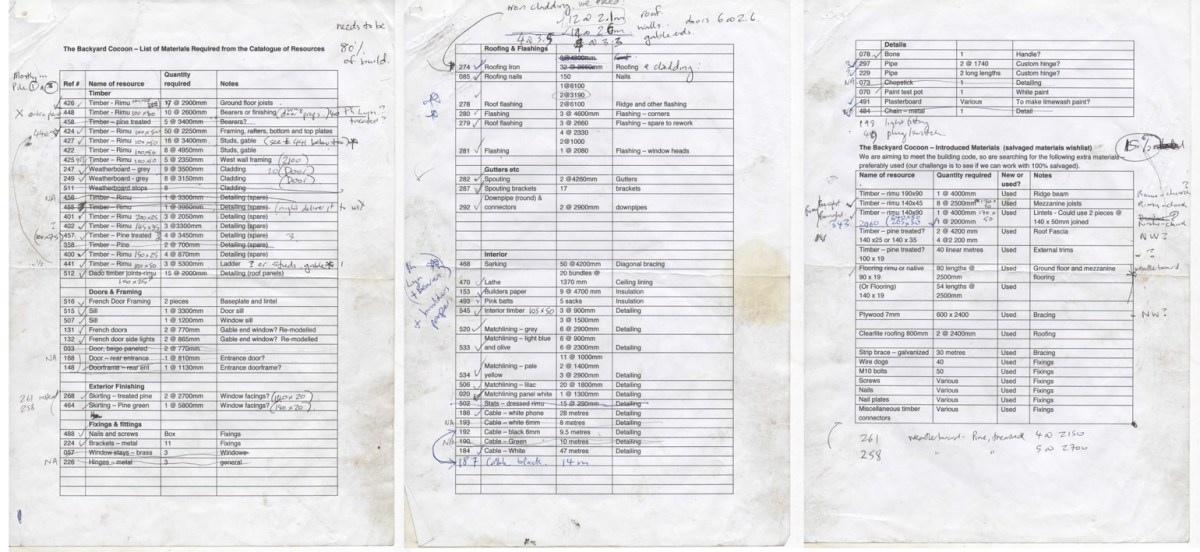 needs to be
80%
of build.
The Backyard Cocoon – List of Materials Required from the Catalogue of Resources
Ref # Name of resource Quantity required Notes
Timber
426 Timber - Rimu 17 @ 2900mm Ground floor joists
448 Timber - Rimu 10 @ 2600mm Bearers or finishing/
458 Timber – pine treated 5 @ 3400mm Bearers?
424 Timber - Rimu 50 @ 2250mm Framing, rafters, bottom and top plates
427 Timber - Rimu 16 @ 3400mm Studs, gable
422 Timber - Rimu 8 @ 4950mm Studs, gable
425 Timber - Rimu 5 @ 2350mm West wall framing (2100)
247 Weatherboard – grey 9 @ 3500mm Cladding
249 Weatherboard – grey 8 @ 3150mm Cladding (Door)
511 Weatherboard stops 9 Cladding
NA 456 Timber - Rimu 1 @ 3300mm Detailing (spare)
Timber - Rimu Detailing (spare)
401 Timber - Rimu 200x25 3 @ 2050mm Detailing (spare)
402 Timber - Rimu 3 @3300mm Detailing (spare)
457 Timber – Pine treated 4 @ 3450mm Detailing (spare)
358 Timber – Pine 2 @ 700mm Detailing (spare)
400 Timber – Rimu 150x25 4 @ 870mm Detailing (spare)
441 Timber – Rimu 3 @ 5300mm Ladder ? or studs gable
512 Dado timber joints-rimu 15 @ 2000mm Detailing (roof panels)
Doors & Framing
516 French Door Framing 2 pieces Baseplate and lintel
515 Sill 1 @ 3300mm Door sill
507 Sill 1 @ 1200mm Window sill
131 French doors 2 @ 770mm Gable end window? Re-modelled
132 French door side lights 2 @ 865mm Gable end window? Re-modelled
033 Door, beige paneled 2 @ 770mm
NA 168 Door – rear entrance 1 @ 810mm Entrance door?
148 Doorframe – rear ent 1 @ 1130mm Entrance doorframe?
Exterior Finishing
261
258
268 Skirting – treated pine 2 @ 2700mm Window facings? (140x20)
464 Skirting – Pine green 1 @ 5800mm Window facings? (190x20)
Fixings & fittings
488 Nails and screws Box Fixings
224 Brackets – metal 11 Fixings
057 Window stays – brass 3 Windows
NA 226 Hinges – metal 3 general
roof.
walls.
gable ends.
doors 6@2.6.
12@2.1m
4@3.5
Roofing & Flashings
274 Roofing Iron 32 @ 2660mm Roofing & cladding
085 Roofing nails 150 Nails
1@6100
2@3190
278 Roof flashing 2@6100 Ridge and other flashing
280 Flashing 4 @ 3100 Flashing – corners
279 Roof flashing 3 @ 2660 Flashing – spare to rework
4 @ 2330
2@1000
281 Flashing 1 @ 2080 Flashing – window heads
Gutters etc
282 Spouting 2 @4260mm Gutters
287 Spouting brackets 17 brackets
Downpipe (round) &
292 connectors 2 @ 2900mm downpipes
Interior
468 Sarking 50 @4200mm Diagonal bracing
20 bundles @
470 Lathe 1370 mm Ceiling lining
153 Builders paper 9 @ 4700 mm Insulation
493 Pink batts 5 sacks Insulation
545 Interior timber 105x50 3 @ 900mm Detailing
3 @ 1500mm
520 Matchlining – grey 6 @ 2900mm Detailing
Matchlining – light blue 6 @ 900mm
533 and olive 6 @ 2300mm Detailing
11 @ 1000mm
Matchlining – pale 2 @ 1400mm
534 yellow 3 @ 2900mm Detailing
506 Matchlining – lilac 20 @ 1800mm Detailing
020 Matchlining panel white 1 @ 1300mm Detailing
502 Slats – dressed rimu 15 @ 290mm Detailing
186 Cable – white phone 28 metres Detailing
NA 193 Cable – white 6mm 6 metres Detailing
192 Cable – black 6mm 9.5 metres Detailing
NA 190 Cable – Green 10 metres Detailing
184 Cable – White 47 metres Detailing
187 Cable black. 14m
Details
078 Bone 1 Handle?
297 Pipe 2 @ 1740 Custom hinge?
229 Pipe 2 long lengths Custom hinge?
NA 073 Chopstick 1 Detailing
070 Paint test pot 1 White paint
491 Plasterboard Various To make limewash paint?
484 Chain – metal 1 Detail
light fitting
plug/switch
15%
The Backyard Cocoon – Introduced Materials (salvaged materials wishlist)
We are aiming to meet the building code, so are searching for the following extra materials –
preferably used (our challenge is to see if we can work with 100% salvaged).
Name of resource Quantity required New or used? Notes
Timber – rimu 190x90 1 @ 4000mm Used Ridge beam
Timber – rimu 140x45 8 @ 2500mm Used Mezzanine joists
Timber – rimu 140x90 1 @ 4000mm Used Lintels - Could use 2 pieces @
@ 2000mm 140 x 50mm joined
Timber – pine treated? 2 @ 4200 mm Used Roof Fascia
140 x25 or 140 x 35 4 @2 200 mm
NW?
Timber – pine treated? 40 linear metres Used External trims
100 x 19
Flooring rimu or native 80 lengths @ Used Ground floor and mezzanine
90 x 19 2500mm flooring
(Or Flooring) 54 lengths @ Used
140 x 19 2500mm
Plywood 7mm 600 x 2400 Used Bracing
NW?
Clearlite roofing 800mm 2 @ 2400mm Used Roofing
Strip brace – galvanized 30 metres Used Bracing
Wire dogs 40 Used Fixings
M10 bolts 50 Used Fixings
Screws Various Used Fixings
Nails Various Used Fixings
Nail plates Various Used Fixings
Miscellaneous timber Various Used Fixings
connectors
261 weatherboard - Pine, treated 4@2150
258 " " 5@2700